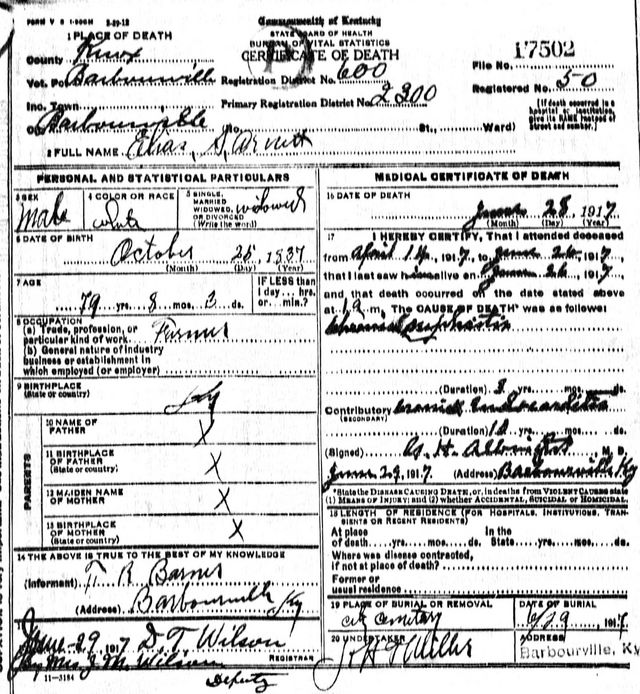 FORM V S 1-500M 3-29-12
Commonwealth of Kentucky
STATE BOARD OF HEALTH
BUREAU OF VITAL STATISTICS
CERTIFICATE OF DEATH
1 PLACE OF DEATH
County Knox
Vot. Pct. Barbourville Registration District No. 600
Inc. Town Primary Registration District No. 2300
City Barbourville (No. St., Ward)
File No. 17502
Registered No. 50
[If death occurred in a hospital or institution, give its NAME instead of street and number.]
2 FULL NAME Elias S. Arnett
PERSONAL AND STATISTICAL PARTICULARS
3 SEX Male
4 COLOR OR RACE White
5 SINGLE, MARRIED WIDOWED, OR DIVORCED (Write the word) widowed
6 DATE OF BIRTH
October 25, 1837
(Month) (Day) (Year)
7 AGE
79 yrs. 8 mos. 3 ds.
IF LESS than 1 day... hrs. or... min.?
8 OCCUPATION
(a) Trade, profession, or particular kind of work. Farmer
(b) General nature of industry
business or establishment in
which employed (or employer)
9 BIRTHPLACE
(State or country) Ky
PARENTS
10 NAME OF FATHER X
11 BIRTHPLACE OF FATHER (State or country) X
12 MAIDEN NAME OF MOTHER X
13 BIRTHPLACE OF MOTHER (State or country) X
14 THE ABOVE IS TRUE TO THE BEST OF MY KNOWLEDGE
(Informant) T. R. Barner
(Address) Barbourville Ky
15
June 29 1917 D. T. Wilson
By Mrs J. M. Wilson
REGISTRAR
Deputy
11-3184
MEDICAL CERTIFICATE OF DEATH
16 DATE OF DEATH
June 28, 1917
(Month) (Day) (Year)
17 I HEREBY CERTIFY, That I attended deceased
from April 14, 1917, to June 26, 1917,
that I last saw him alive on June 26, 1917
and that death occurred on the date stated above
at m. The CAUSE OF DEATH* was as follows:
Chronic
(Duration) 8 yrs. mos. ds.
Contributory Chronic Endocarditis
(SECONDARY)
(Duration) 10
(Signed) G. H. Albright M. D.
June 29, 1917 (Address) Barbourville Ky
*State the DISEASE CAUSING DEATH, or, in deaths from VIOLENT CAUSES state
(1) MEANS OF INJURY; and (2) whether ACCIDENTAL, SUICIDAL or HOMICIDAL.
18 LENGTH OF RESIDENCE (FOR HOSPITALS, INSTITUTIONS, TRANSIENTS OR RECENT RESIDENTS)
At place of death yrs. mos. ds. In the State yrs. mos. ds.
Where was disease contracted,
if not at place of death?
Former or
usual residence
19 PLACE OF BURIAL OR REMOVAL
City Cemetery
DATE OF BURIAL
6/29 1917
20 UNDERTAKER
ADDRESS
Barbourville, Ky